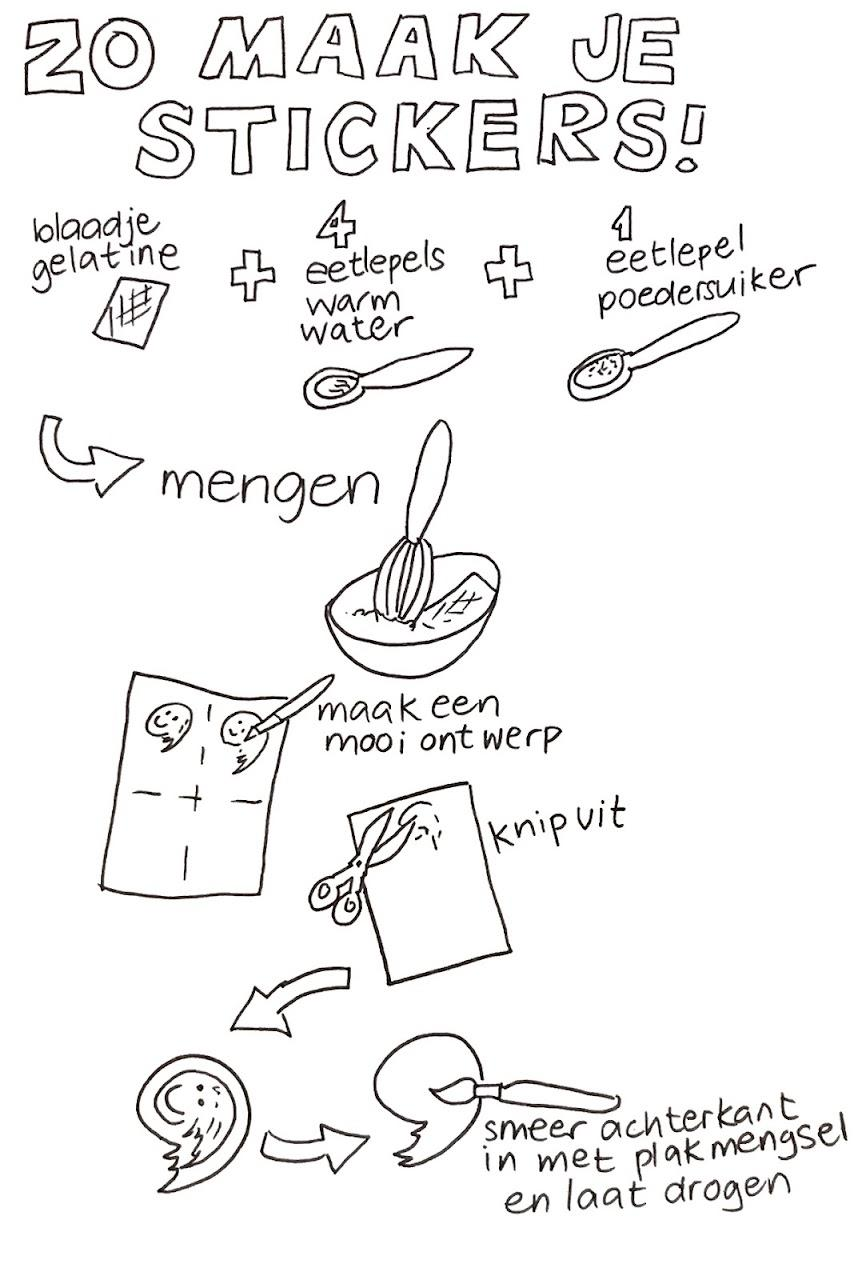 ZO MAAK JE
STICKERS!
blaadje
gelatine
+
4
eetlepels
warm
water
+
1
eetlepel
poedersuiker
mengen
maak een
mooi ontwerp
knip uit
smeer achterkant
in met plakmengsel
en laat drogen